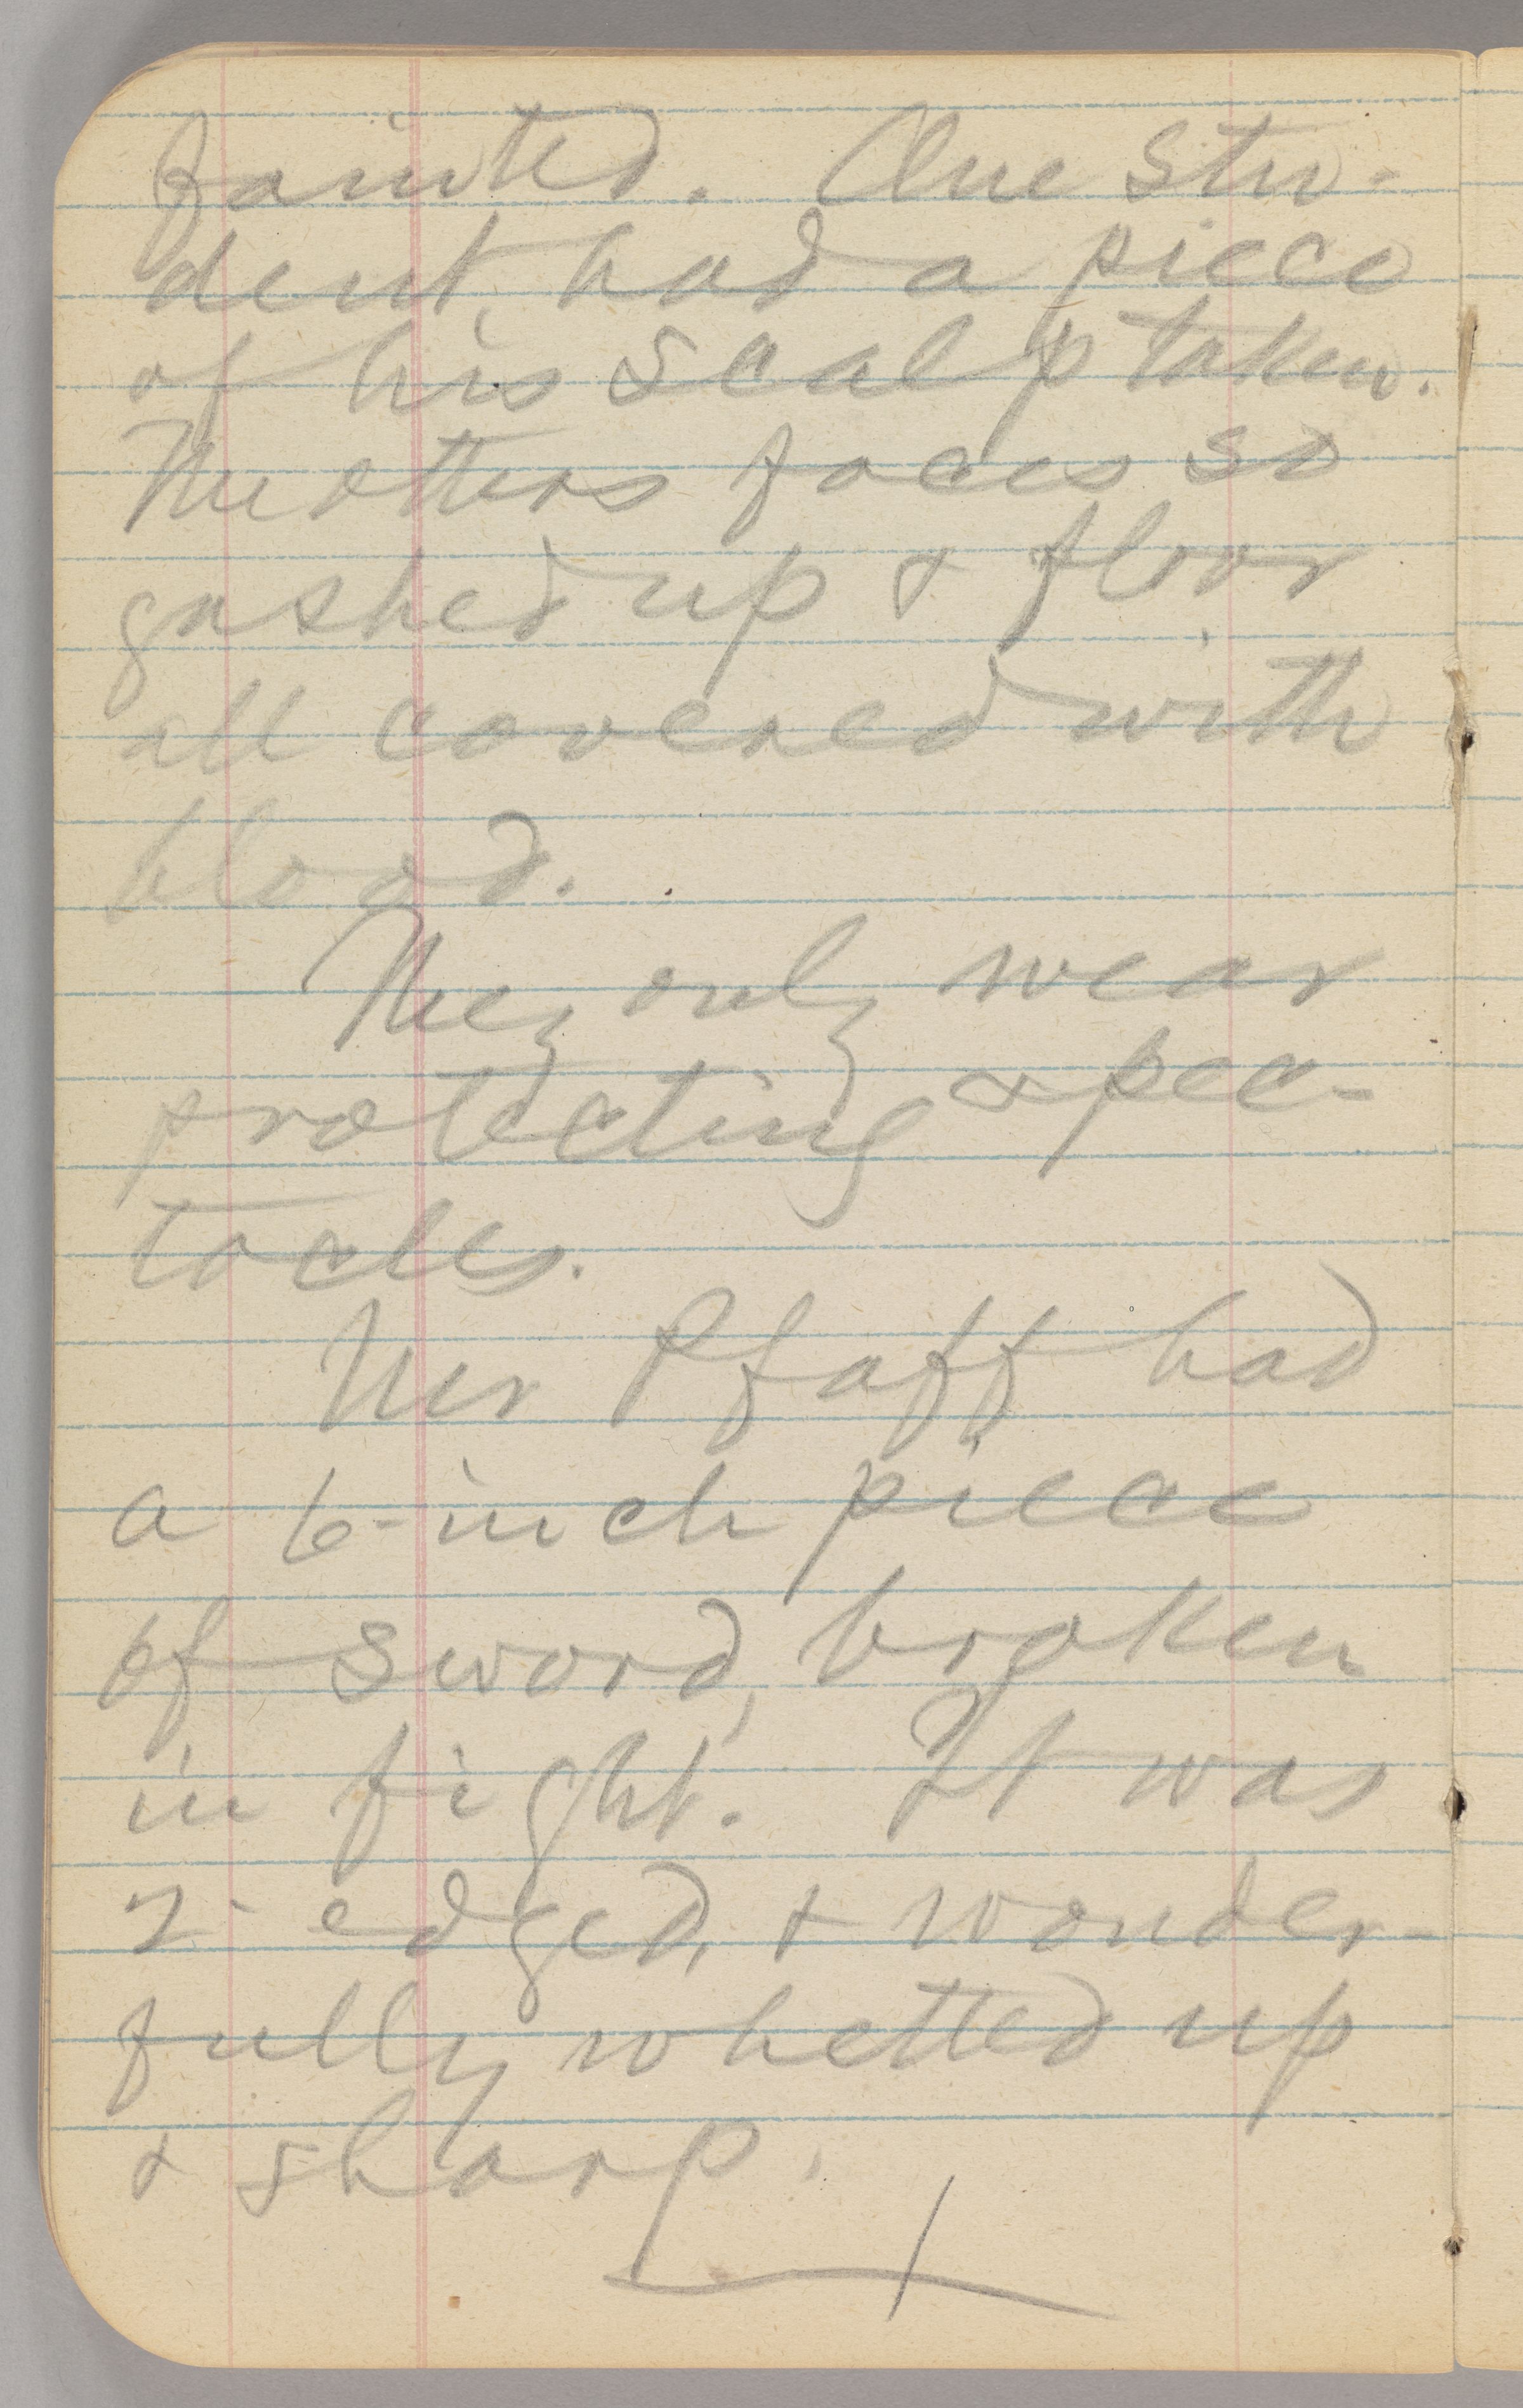 fainted. One stu-
dent had a piece
of his scalp taken.
The others faces so
gashed up & floor
all covered with
blood.
They only wear
protecting spec-
tacles.
Mr Pfaff had
a 6-inch piece
of sword, broken
in fight. It was
2-edged, & wonder-
fully whetted up
& sharp.